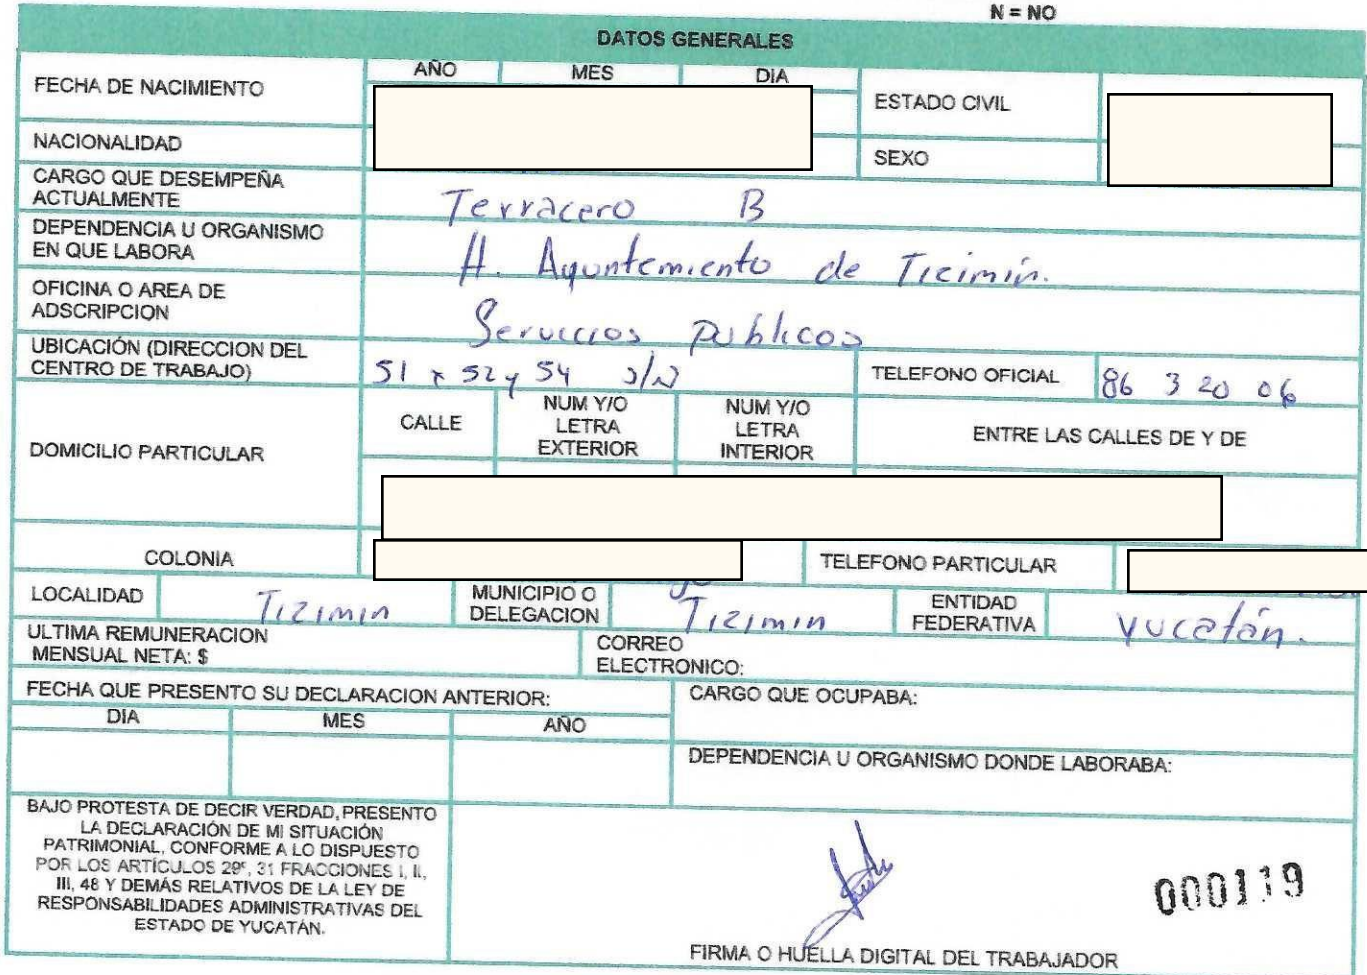 N = NO
DATOS GENERALES
FECHA DE NACIMIENTO
AÑO MES DIA
ESTADO CIVIL
NACIONALIDAD
SEXO
CARGO QUE DESEMPEÑA
ACTUALMENTE
Terracero B
DEPENDENCIA U ORGANISMO
EN QUE LABORA
H. Ayuntemiento de Tizimín.
OFICINA O AREA DE
ADSCRIPCION
Servicios publicos
UBICACIÓN (DIRECCION DEL
CENTRO DE TRABAJO)
51 x 52 y 54 S/N
TELEFONO OFICIAL
86 3 20 06
DOMICILIO PARTICULAR
CALLE
NUM Y/O
LETRA
EXTERIOR
NUM Y/O
LETRA
INTERIOR
ENTRE LAS CALLES DE Y DE
COLONIA
TELEFONO PARTICULAR
LOCALIDAD
Tizimin
MUNICIPIO O
DELEGACION
Tizimin
ENTIDAD
FEDERATIVA
Yucatán.
ULTIMA REMUNERACION
MENSUAL NETA: $
CORREO
ELECTRONICO:
FECHA QUE PRESENTO SU DECLARACION ANTERIOR:
CARGO QUE OCUPABA:
DIA MES AÑO
DEPENDENCIA U ORGANISMO DONDE LABORABA:
BAJO PROTESTA DE DECIR VERDAD, PRESENTO
LA DECLARACIÓN DE MI SITUACIÓN
PATRIMONIAL, CONFORME A LO DISPUESTO
POR LOS ARTÍCULOS 29º, 31 FRACCIONES I, II,
III, 48 Y DEMÁS RELATIVOS DE LA LEY DE
RESPONSABILIDADES ADMINISTRATIVAS DEL
ESTADO DE YUCATÁN.
000119
FIRMA O HUELLA DIGITAL DEL TRABAJADOR